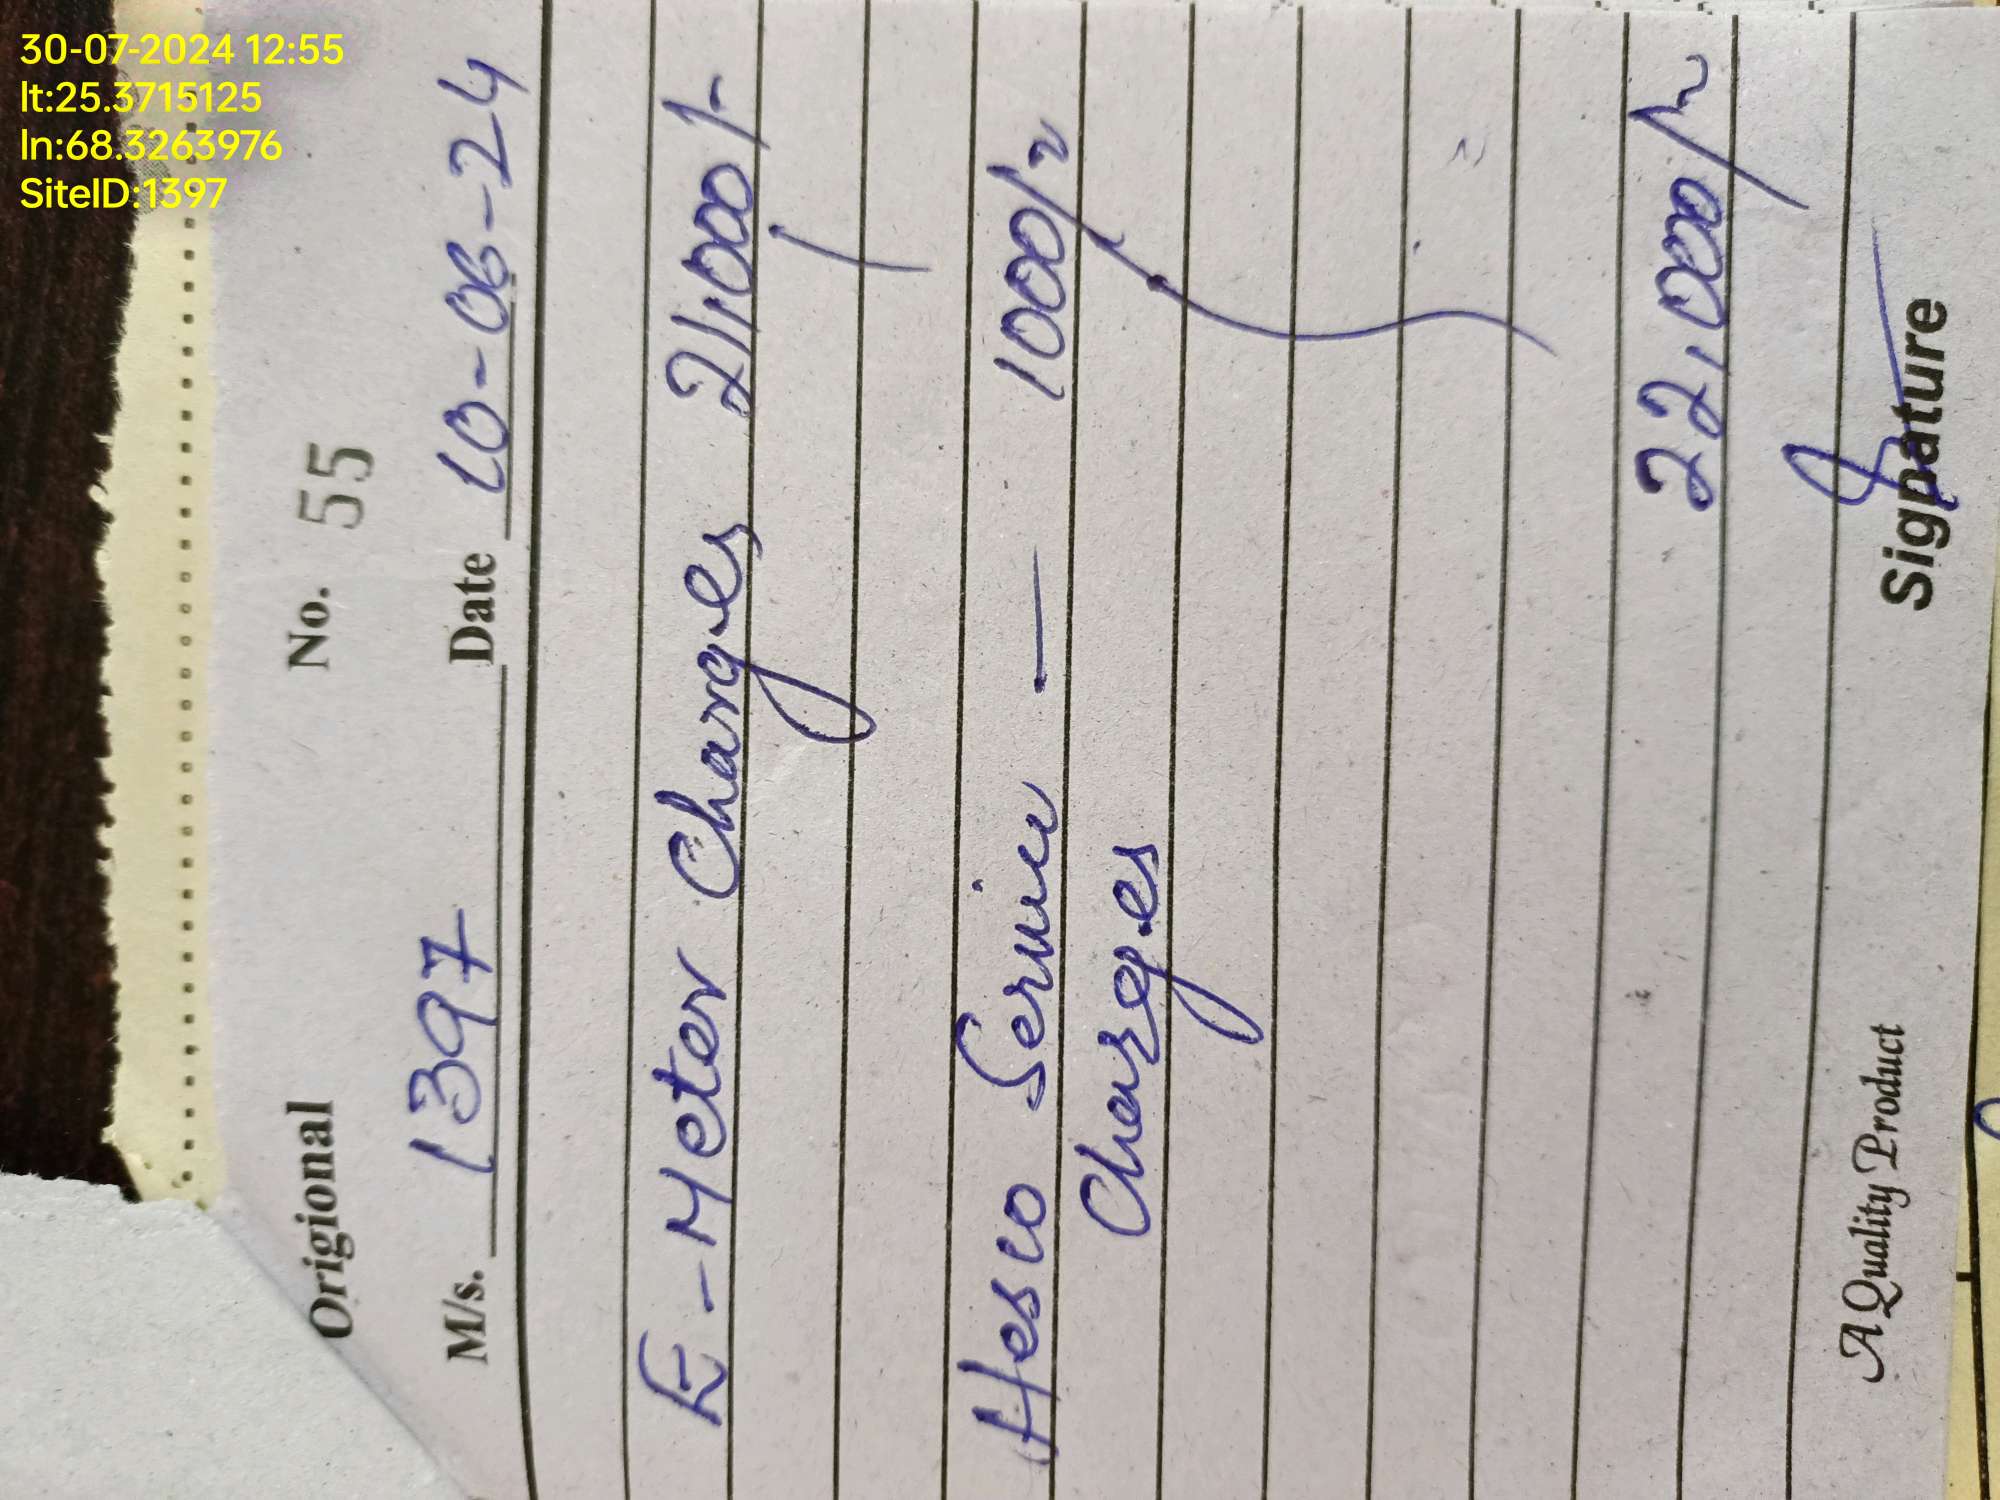 30-07-2024 12:55
lt:25.3715125
ln:68.3263976
SiteID:1397
Origional No. 55
M/s. 1397 Date 10-06-24
E-Meter Charges 21,000/-
Hesco Service — 1000/-
Charges
22,000/-
A Quality Product Signature